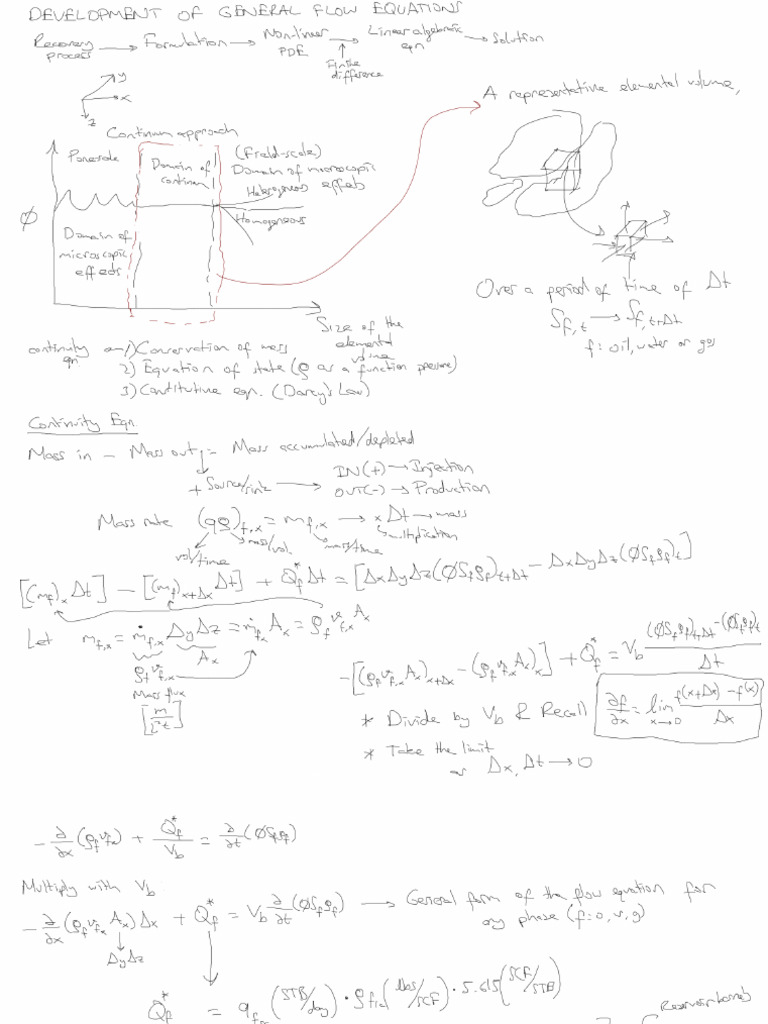 DEVELOPMENT OF GENERAL FLOW EQUATIONS
Recovery process → Formulation → Non-linear PDE → Linear algebraic eqn → Solution
Finite difference
y
x
z
Continuum approach
A representative elemental volume,
Porescale
Domain of continuum
(Field-scale)
Domain of microscopic effects
Heterogeneous
Homogeneous
Ø
Domain of microscopic effects
Size of the elemental volume
Over a period of time of Δt
S_{f,t} → S_{f,t+Δt}
f: oil, water or gas
continuity eqn 1) Conservation of mass
2) Equation of state (ρ as a function pressure)
3) Constitutive eqn. (Darcy's Law)
Continuity Eqn.
Mass in – Mass out = Mass accumulated/depleted
+ Source/sink → IN(+) → Injection
OUT(-) → Production
Mass rate (qρ)_{f,x} = m_{f,x} → x Δt → mass
vol/time mass/vol. mass/time multiplication
[(m_f)_x Δt] – [(m_f)_{x+Δx} Δt] + Q_f^* Δt = [ΔxΔyΔz(ØS_fρ_f)_{t+Δt} – ΔxΔyΔz(ØS_fρ_f)_t]
Let m_{f,x} = ṁ_{f,x} ΔyΔz = ṁ_{f,x} A_x = ρ_f v_{f,x} A_x
ρ_f v_{f,x} A_x
Mass flux
[m/L²t]
-[(ρ_f v_{f,x} A_x)_{x+Δx} – (ρ_f v_{f,x} A_x)_x] + Q_f^* = V_b ((ØS_fρ_f)_{t+Δt} – (ØS_fρ_f)_t)/Δt
* Divide by V_b & Recall ∂f/∂x = lim_{x→0} (f(x+Δx) – f(x))/Δx
* Take the limit as Δx, Δt → 0
-∂/∂x (ρ_f v_{fx}) + Q_f^*/V_b = ∂/∂t (ØS_fρ_f)
Multiply with V_b
-∂/∂x (ρ_f v_{fx} A_x) Δx + Q_f^* = V_b ∂/∂t (ØS_fρ_f) → General form of the flow equation for any phase (f: o, w, g)
ΔyΔz
Q_f^* = q_{fsc} (STB/day) · ρ_{fsc} (lbs/SCF) · 5.615 (SCF/STB)